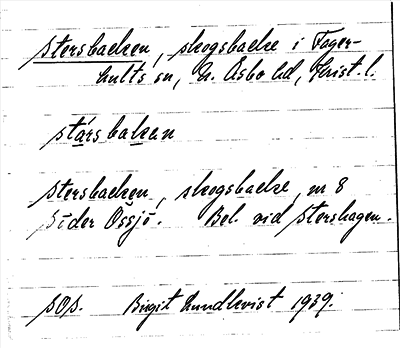 Stersbacken, skogsbacke i Fager-
hults sn, N. Åsbo hd, Krist. l.
stársbakən
Stersbacken, skogsbacke, nr 8
Söder Össjö. Bel. vid Stershagen.
SOS. Birgit Lundkvist 1939.